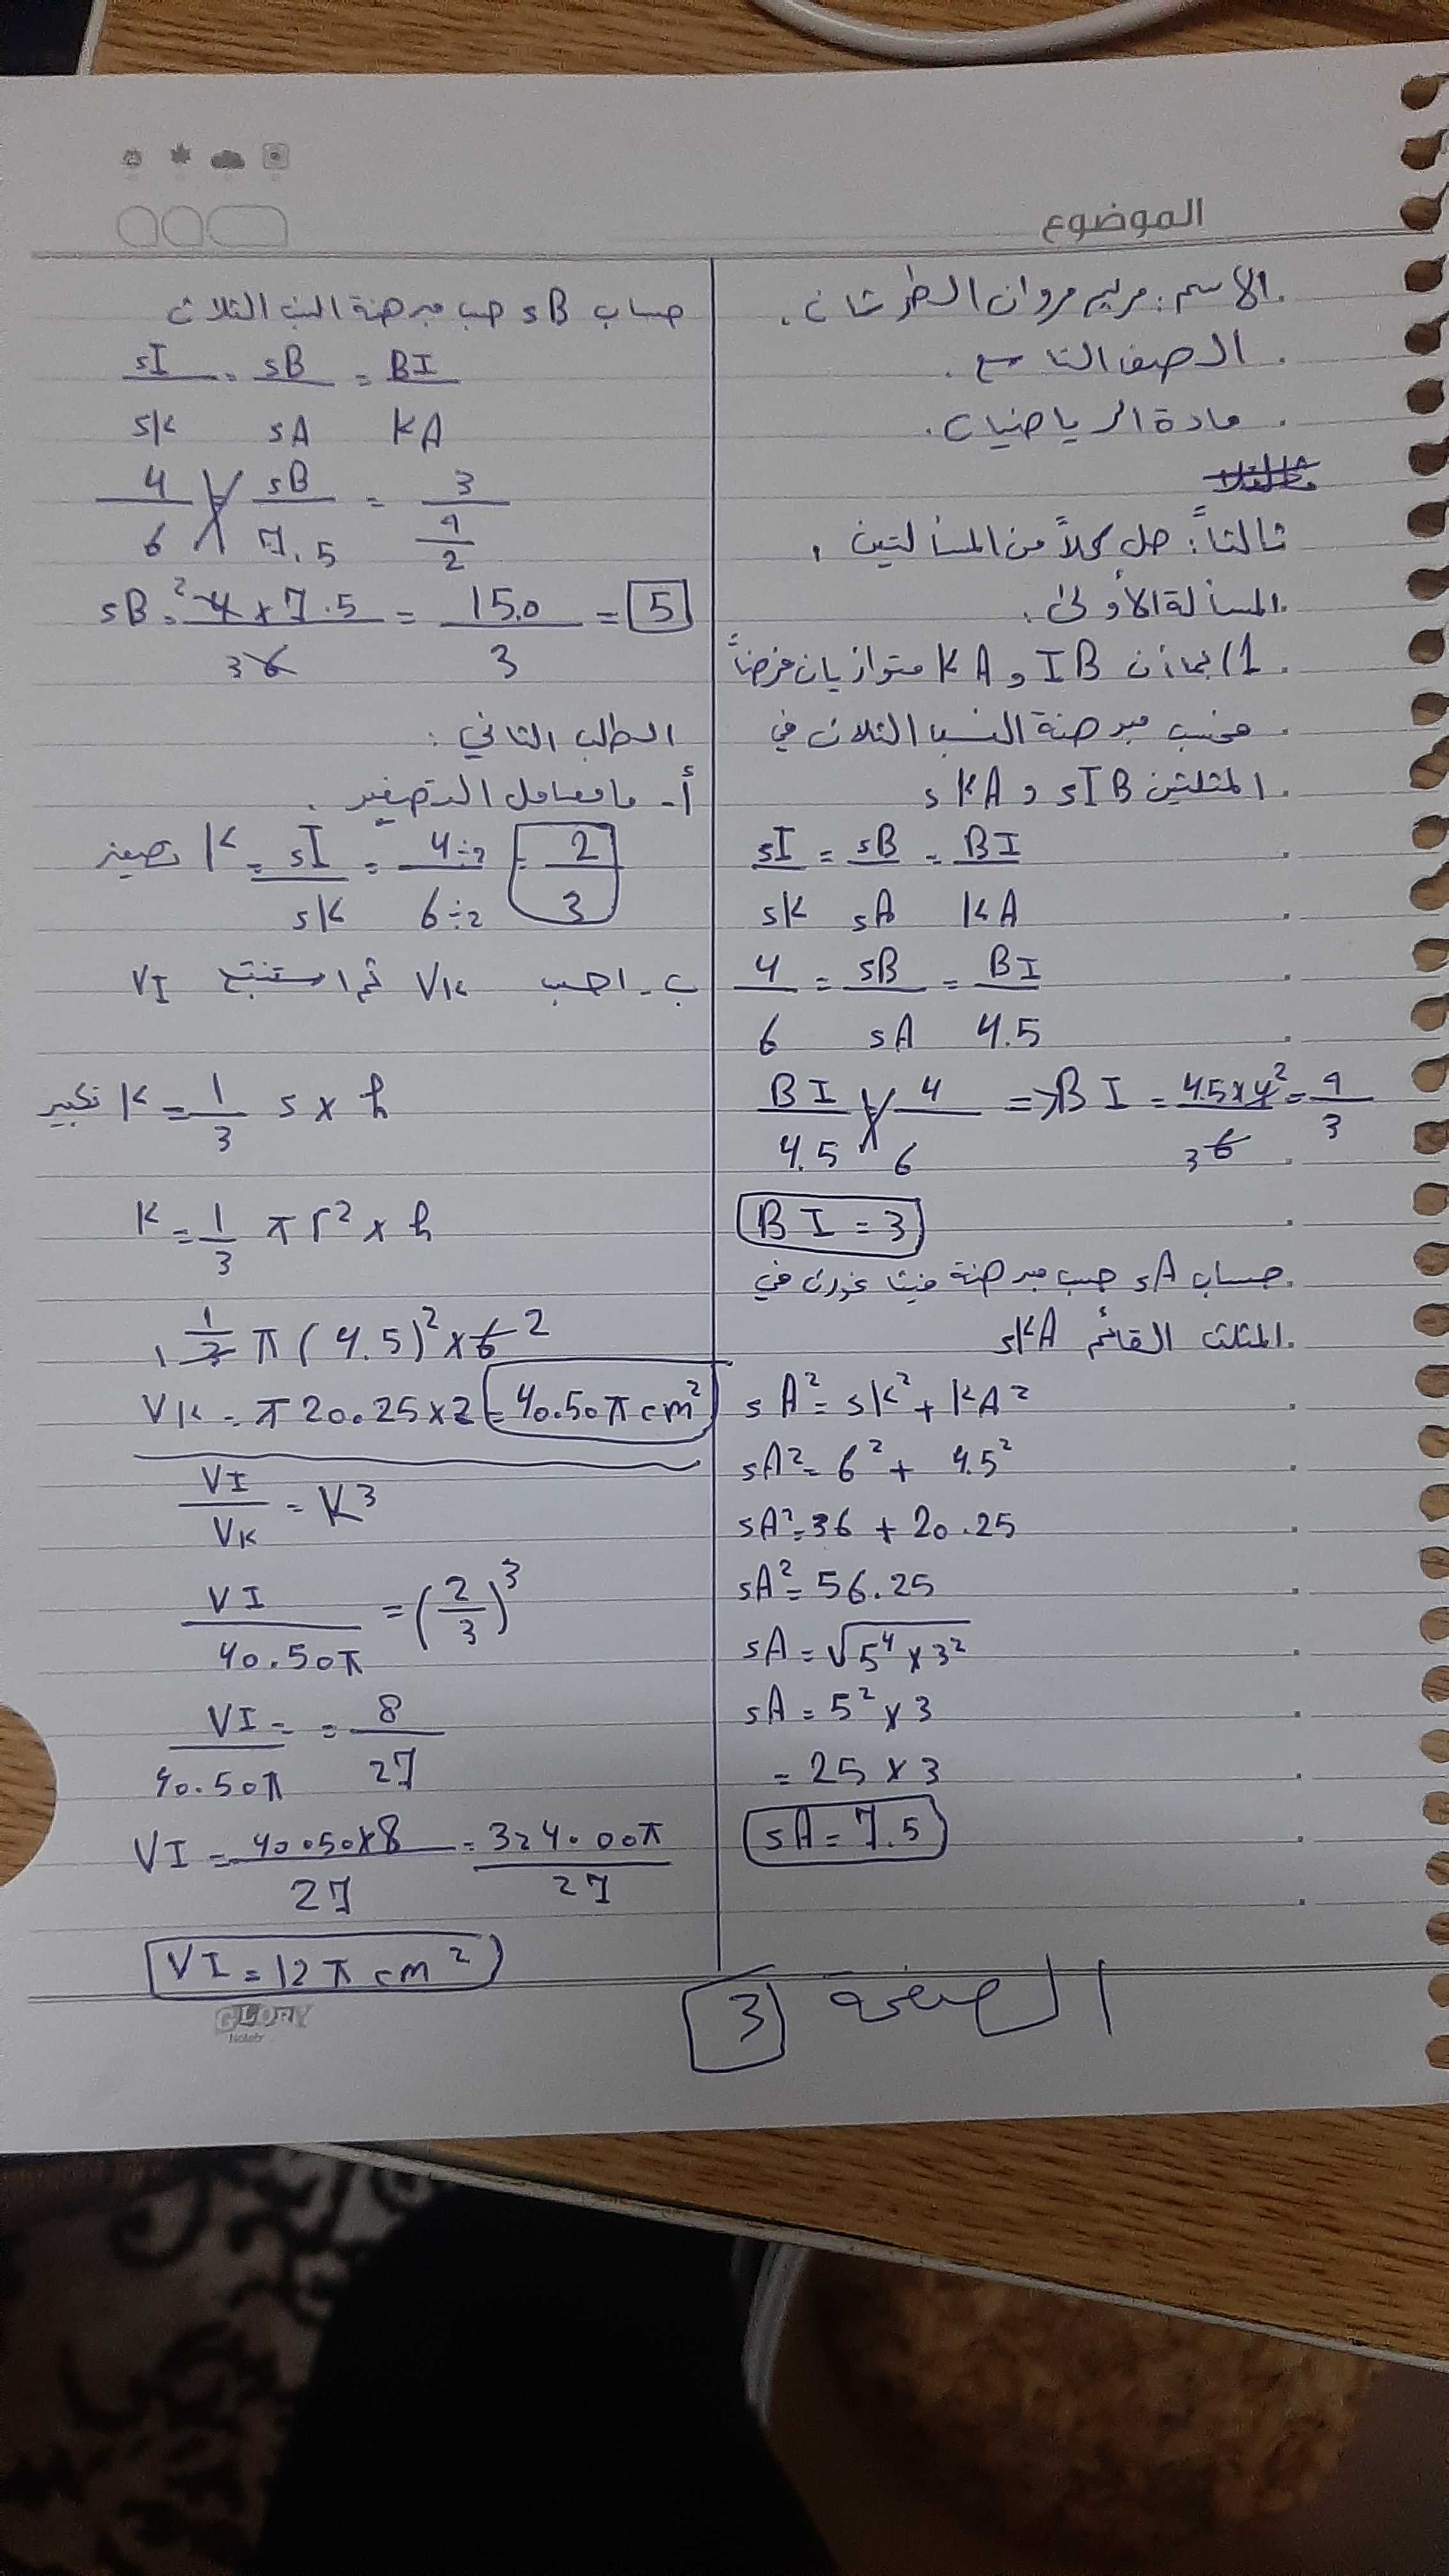 الموضوع
الاسم: مريم مروان الطرشان.
الصف التاسع.
مادة الرياضيات.
ثالثاً: حل كلاً من المسألتين.
المسألة الأولى.
1) بما أن IB و KA متوازيان فرضاً
فحسب مبرهنة النسب الثلاث في
المثلثين sIB و sKA
sI/sK = sB/sA = BI/KA
4/6 = sB/sA = BI/4.5
BI/4.5 = 4/6 => BI = 4.5×4²/3 6 = 9/3
BI = 3
حساب sA حسب مبرهنة فيثاغورث في
المثلث القائم sKA
sA² = sK² + KA²
sA² = 6² + 4.5²
sA² = 36 + 20.25
sA² = 56.25
sA = √5⁴ × 3²
sA = 5² × 3
= 25 × 3
sA = 7.5
حساب sB حسب مبرهنة النسب الثلاث
sI/sK = sB/sA = BI/KA
4/6 sB/7.5 = 3/(9/2)
sB = ²4 × 7.5/3 6 = 15.0/3 = 5
الطلب الثاني:
أ- ما معامل التصغير.
K تصغير = sI/sK = 4÷2/6÷2 = 2/3
ب- احسب VK ثم استنتج VI
K تكبير = 1/3 s × h
K = 1/3 π r² × h
1/3 π (4.5)² × 6 2
VK = π 20.25 × 2 = 40.50 π cm²
VI/VK = K³
VI/40.50π = (2/3)³
VI/40.50π = = 8/27
VI = 40.50×8/27 = 324.00π/27
VI = 12 π cm²
الصفحة 3
GLORY